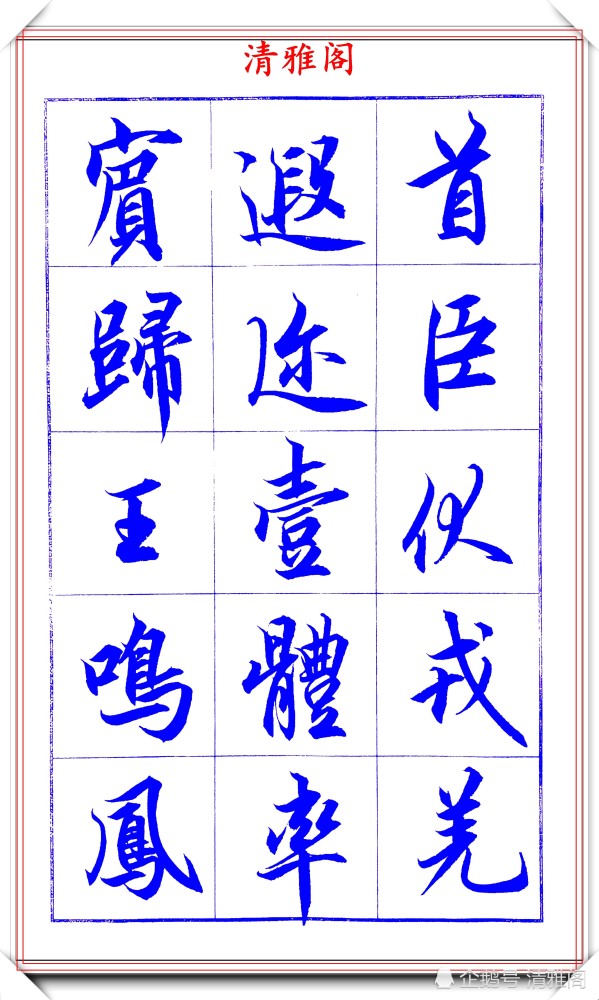 清雅阁
首臣伏戎羌
遐迩壹體率
賓歸王鳴鳳
企鹅号 清雅阁